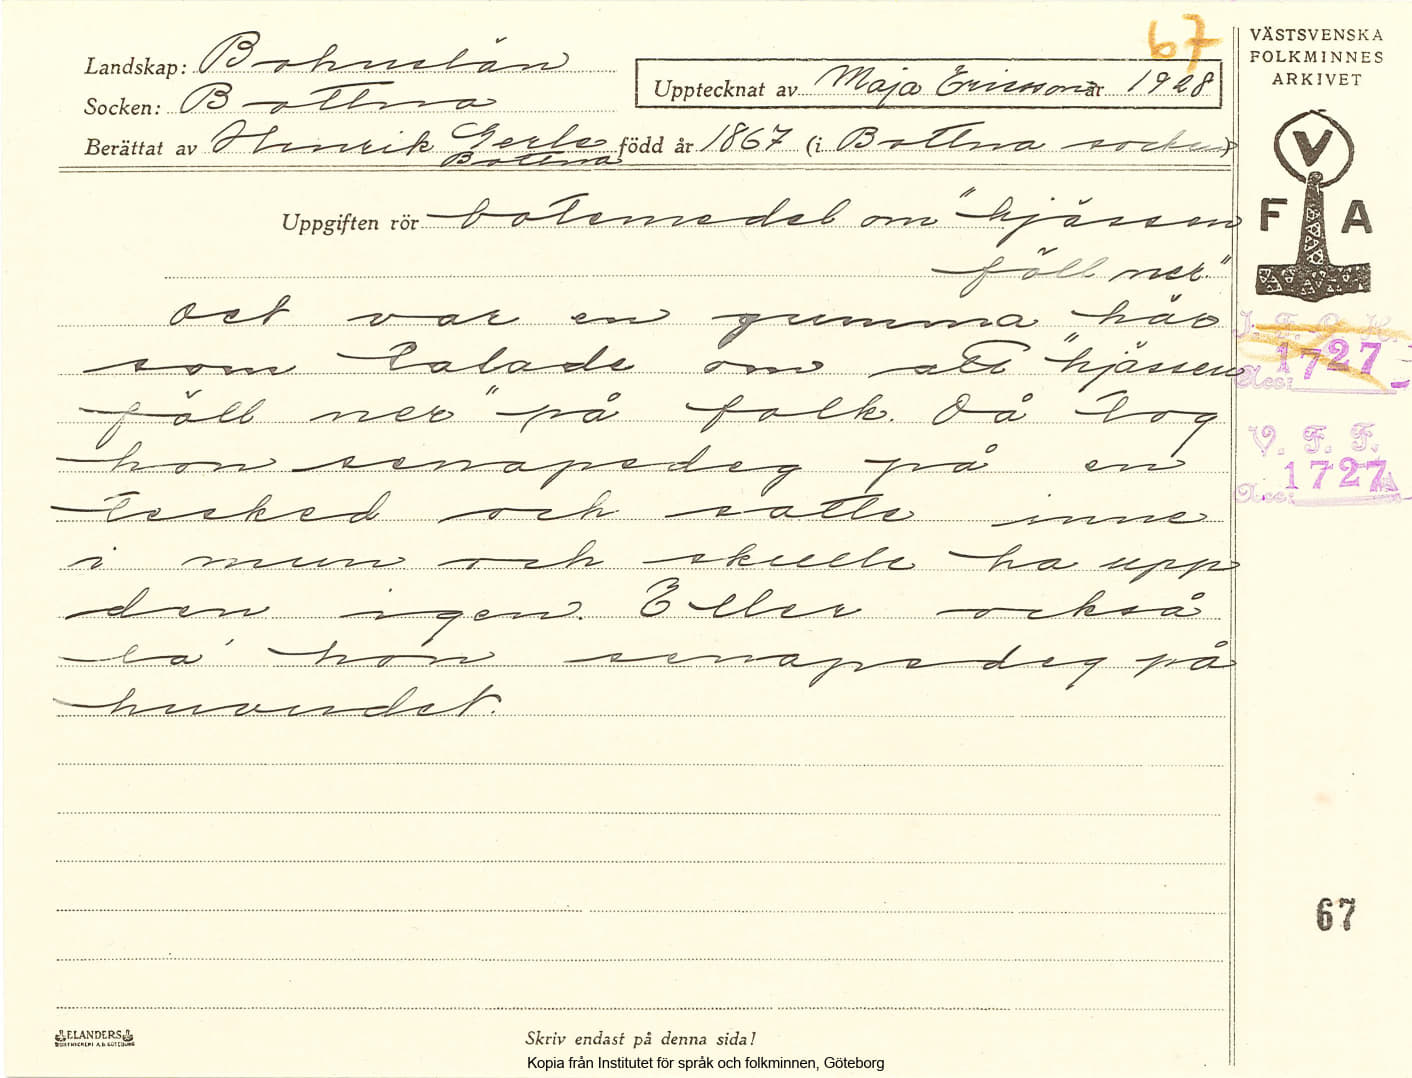 67
VÄSTSVENSKA
FOLKMINNES
ARKIVET
Landskap: Bohuslän
Socken: Bottna
Upptecknat av Maja Ericsson år 1928
Berättat av Henrik Gerle född år 1867 (i Bottna socken)
Bottna
V
F A
Uppgiften rör botemedel om "hjässen
föll ner."
Det var en gumma här
som talade om att "hjässen
föll ner" på folk. Då tog
hon senapsdeg på en
tesked och satte inne
i mun och skulle ha upp
den igen. Eller också
la' hon senapsdeg på
huvudet.
1727
Acc:
V. F. F.
1727
Acc:
67
ELANDERS
BOKTRYCKERI A.B. GÖTEBORG
Skriv endast på denna sida!
Kopia från Institutet för språk och folkminnen, Göteborg